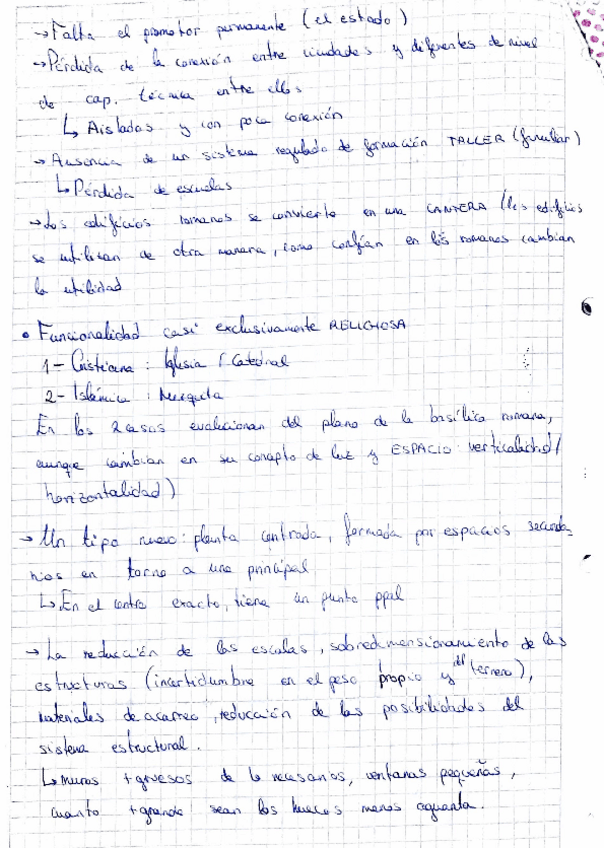 → Falta el promotor permanente (el estado)
→ Pérdida de la conexión entre ciudades y diferentes de nivel
de cap. técnica entre ellos
↳ Aisladas y con poca conexión
→ Ausencia de un sistema regulado de formación TALLER (familiar)
↳ Pérdida de escuelas
→ Los edificios romanos se convierte en una CANTERA (los edificios
se utilizan de otra manera, como confían en los romanos cambian
la utilidad
• Funcionalidad casi exclusivamente RELIGIOSA
1- Cristiana: Iglesia / Catedral
2- Islámica: Mezquita
En los 2 casos evolucionan del plano de la basílica romana,
aunque cambian en su concepto de luz y ESPACIO verticalidad /
horizontalidad)
→ Un tipo nuevo: planta centrada, formada por espacios secunda
rios en torno a uno principal
↳ En el centro exacto, tiene un punto ppal
→ La reducción de las escalas, sobredimensionamiento de las
estructuras (incertidumbre en el peso propio y del terreno),
materiales de acarreo, reducción de las posibilidades del
sistema estructural.
↳ muros + gruesos de lo necesarios, ventanas pequeñas,
cuanto + grande sean los huecos menos aguanta.